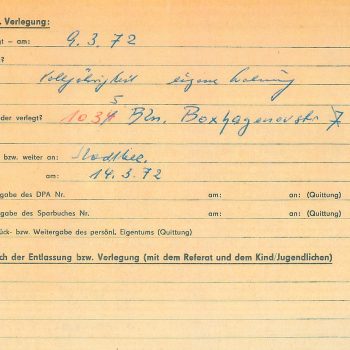 . Verlegung:
t – am: 9. 3. 72
?
Volljährigkeit eigene Wohnung
der verlegt? 1035 Bln. Boxhagenerstr 7
bzw. weiter an: Stadtbez.
am: 14. 3. 72
gabe des DPA Nr. am: an: (Quittung)
gabe des Sparbuches Nr. am: an: (Quittung)
ück- bzw. Weitergabe des persönl. Eigentums (Quittung)
ch der Entlassung bzw. Verlegung (mit dem Referat und dem Kind/Jugendlichen)